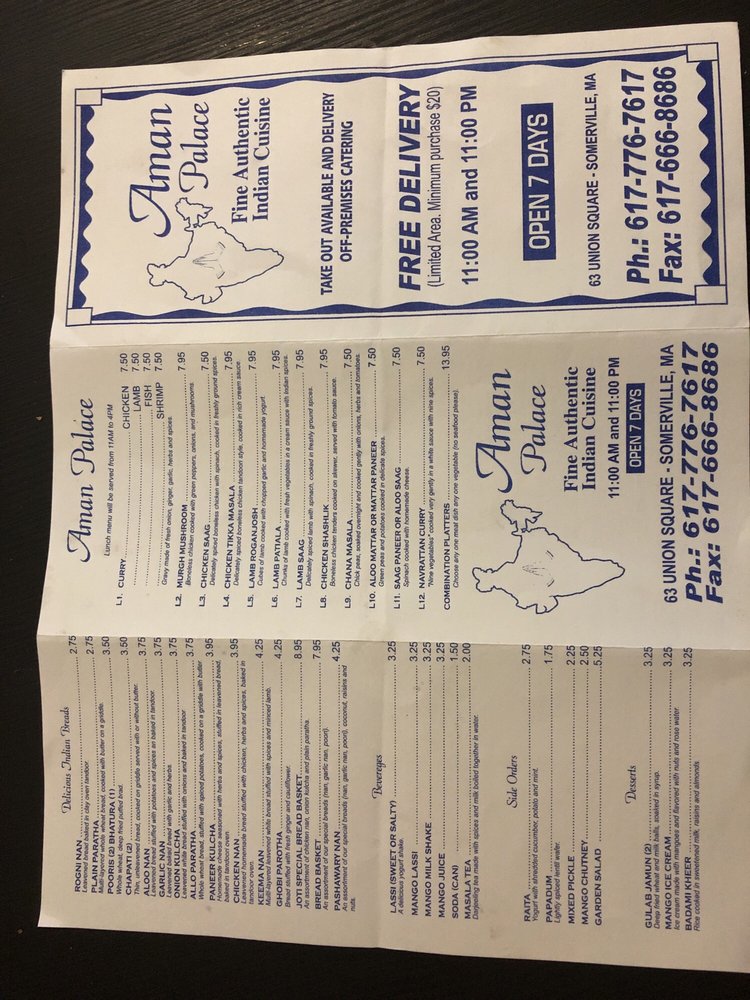 Delicious Indian Breads
ROGNI NAN 2.75
Leavened bread baked in clay oven tandoor.
PLAIN PARATHA 2.75
Multi-layered whole wheat bread, cooked with butter on a griddle.
POORIS (2) BHATURA (1) 3.50
Whole wheat, deep fried puffed bread.
CHAPATI (2) 3.50
Thin, unleavened bread, cooked on griddle served with or without butter.
ALOO NAN 3.75
Leavened stuffed with potatoes and spices an baked in tandoor.
GARLIC NAN 3.75
Leavened bread with garlic and herbs.
ONION KULCHA 3.75
Leavened white bread stuffed with onions and baked in tandoor.
ALLO PARATHA 3.75
Whole wheat bread, stuffed with spiced potatoes, cooked on a griddle with butter.
PANEER KULCHA 3.95
Homemade cheese seasoned with herbs and spices, stuffed in leavened bread,
baked in tandoori oven
CHICKEN NAN 3.95
Leavened homemade bread stuffed with chicken, herbs and spices, baked in
tandoori oven.
KEEMA NAN 4.25
Multi-layered leavened white bread stuffed with spices and minced lamb.
GHOBI PAROTHA 4.25
Bread stuffed with fresh ginger and cauliflower.
JOTI SPECIAL BREAD BASKET 8.95
An assortment of chicken nan, onion kutcha and plain paratha.
BREAD BASKET 7.95
An assortment of our special breads (nan, garlic nan, poori)
PASHAWARI NAN 4.25
An assortment of our special breads (nan, garlic nan, poori), coconut, raisins and
nuts.
Beverages
LASSI (SWEET OR SALTY) 3.25
A delicious yogurt shake.
MANGO LASSI 3.25
MANGO MILK SHAKE 3.25
MANGO JUICE 3.25
SODA (CAN) 1.50
MASALA TEA 2.00
Darjeeling tea made with spices and milk boiled together in water.
Side Orders
RAITA 2.75
Yogurt with shredded cucumber, potato and mint.
PAPADUM 1.75
Lightly spiced lentil wafer.
MIXED PICKLE 2.25
MANGO CHUTNEY 2.50
GARDEN SALAD 5.25
Desserts
GULAB JAMUN 3.25
Deep fried wheat and milk balls, soaked in syrup.
MANGO ICE CREAM 3.25
Ice cream made with mangoes and flavored with nuts and rose water.
BADAMI KHEER 3.25
Rice cooked in sweetened milk, raisins and almonds
Aman Palace
Lunch menu will be served from 11AM to 4PM
L1. CURRY CHICKEN 7.50
LAMB 7.50
FISH 7.50
SHRIMP 7.50
Gravy made of fresh onion, ginger, garlic, herbs and spices.
L2. MURGH MUSHROOM 7.95
Boneless chicken cooked with green peppers, onions, and mushrooms.
L3. CHICKEN SAAG 7.50
Delicately spiced boneless chicken with spinach, cooked in freshly ground spices.
L4. CHICKEN TIKKA MASALA 7.95
Delicately spiced boneless chicken tandoori style, cooked in rich cream sauce.
L5. LAMB ROGANJOSH 7.95
Cubes of lamb cooked with chopped garlic and homemade yogurt
L6. LAMB PATIALA 7.95
Chunks of lamb cooked with fresh vegetables in a cream sauce with Indian spices.
L7. LAMB SAAG 7.95
Delicately spiced lamb with spinach, cooked in freshly ground spices.
L8. CHICKEN SHASHLIK 7.95
Boneless chicken tenders cooked on skewer, served with tomato sauce.
L9. CHANA MASALA 7.50
Chick peas, soaked overnight and cooked gently with onions, herbs and tomatoes.
L10. ALOO MATTAR OR MATTAR PANEER 7.50
Green peas and potatoes cooked in delicate spices.
L11. SAAG PANEER OR ALOO SAAG 7.50
Spinach cooked with homemade cheese.
L12. NAVRATTAN CURRY 7.50
"Nine vegetables" cooked very gently in a white sauce with nine spices.
COMBINATION PLATTERS 13.95
Choose any one meat dish any one vegetable (no seafood please)
Aman
Palace
Fine Authentic
Indian Cuisine
11:00 AM and 11:00 PM
OPEN 7 DAYS
63 UNION SQUARE - SOMERVILLE, MA
Ph.: 617-776-7617
Fax: 617-666-8686
Aman
Palace
Fine Authentic
Indian Cuisine
TAKE OUT AVAILABLE AND DELIVERY
OFF-PREMISES CATERING
FREE DELIVERY
(Limited Area. Minimum purchase $20)
11:00 AM and 11:00 PM
OPEN 7 DAYS
63 UNION SQUARE - SOMERVILLE, MA
Ph.: 617-776-7617
Fax: 617-666-8686